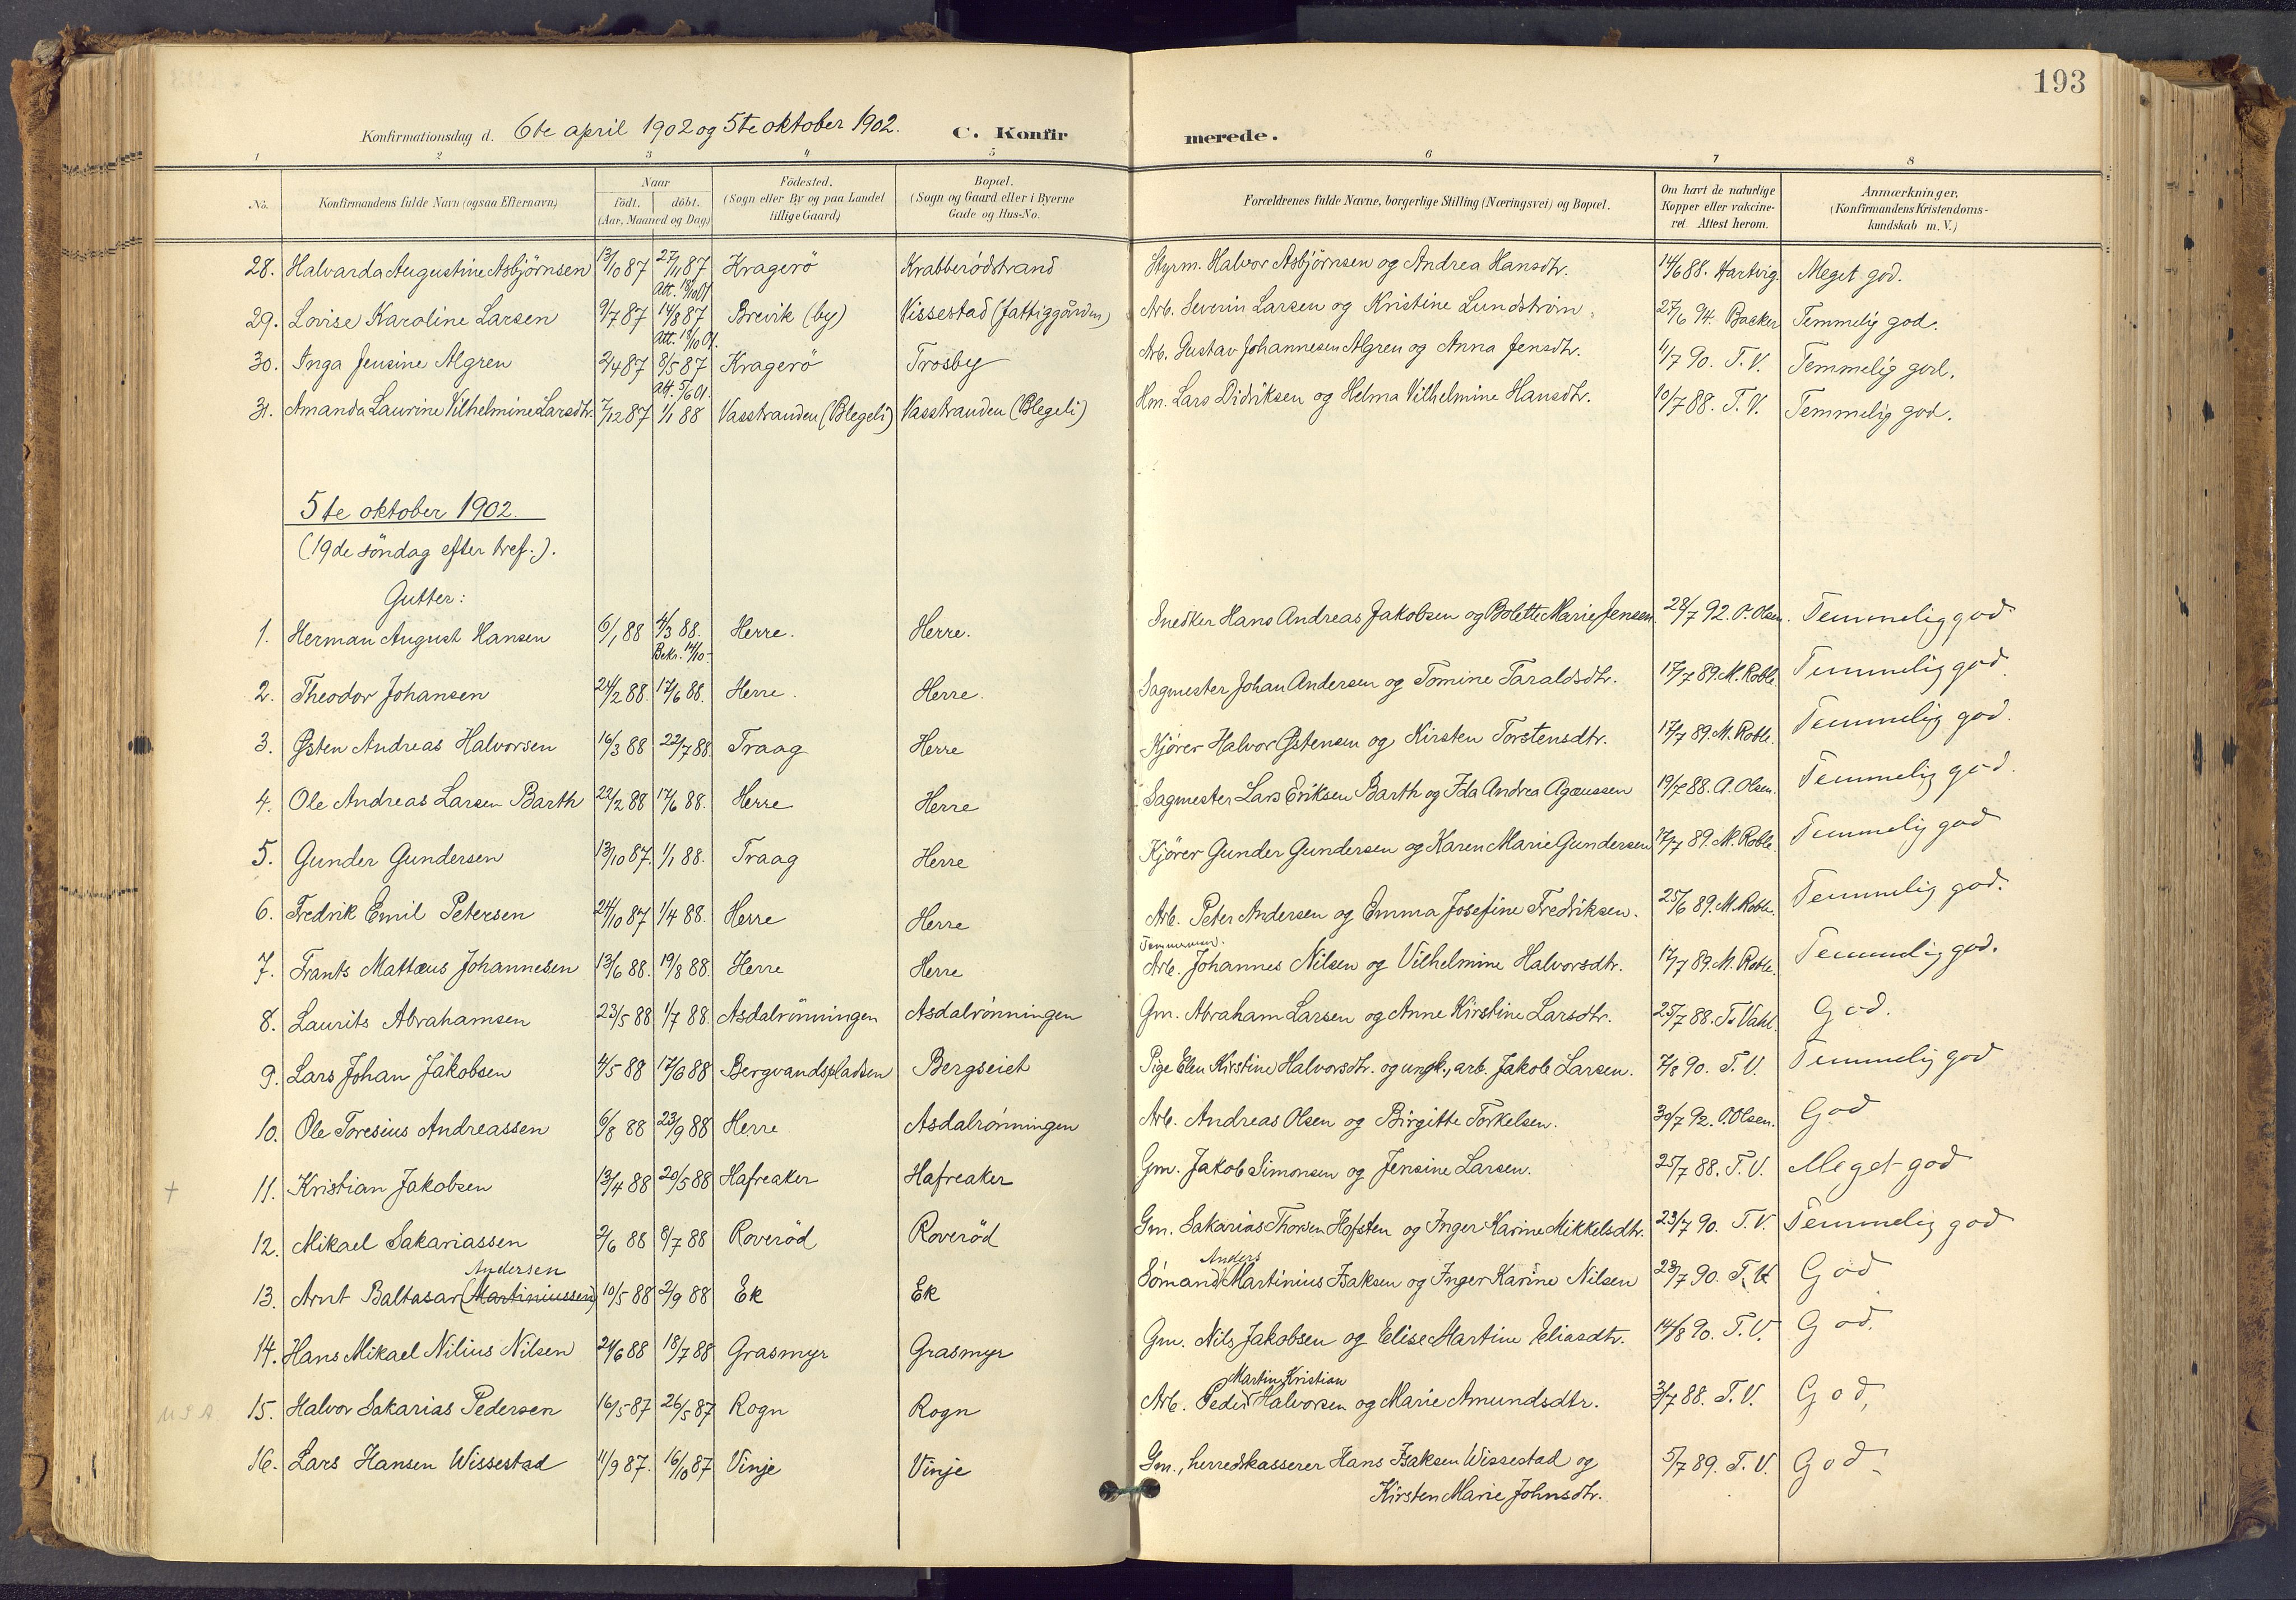 193
Konfirmationsdag d. 6te april 1902 og 5te oktober 1902. C. Konfirmerede.
1 2 3 4 5 6 7 8
No. Konfirmandens fulde Navn (ogsaa Efternavn) Naar födt. döbt. (Aar, Maaned og Dag) Födested. (Sogn eller By og paa Landet tillige Gaard) Bopæl. (Sogn og Gaard eller i Byerne Gade og Hus-No. Forældrenes fulde Navne, borgerlige Stilling (Næringsvei) og Bopæl. Om havt de naturlige Kopper eller vakcineret. Attest herom. Anmærkninger, (Konfirmandens Kristendomskundskab m. V.)
28. Halvarda Augustine Asbjörnsen 13/10 87 27/11 87 Kragerö Krabberödstrand Styrm. Halvor Asbjörnsen og Andrea Hansdtr. 14/6 88. Hartvig. Meget god.
Att. 18/10 01
29. Lovise Karoline Larsen 9/7 87 14/8 87 Brevik (by) Vissestad (fattiggården) Arb. Severin Larsen og Kristine Lundström. 27/6 94. Backer Temmelig god.
Att. 18/10 01.
30. Inga Jensine Algren 2/4 87 8/5 87 Kragerö Trosby Arb. Gustav Johannesen Algren og Anna Jensdtr. 11/7 90. T.V. Temmelig god.
Att. 5/6 01.
31. Amanda Laurine Vilhelmine Larsdtr. 7/12 87 1/1 88 Vasstranden (Blegeli) Vasstranden (Blegeli) Hm. Lars Didriksen og Helma Vilhelmine Hansdtr. 10/7 88. T.V. Temmelig god.
5te oktober 1902.
(19de söndag efter tref.).
Gutter:
1. Herman August Hansen 6/1 88 4/3 88. Herre. Herre. Snedker Hans Andreas Jakobsen og Bolette Marie Jensen 28/7 92. O. Olsen. Temmelig god
Bekr. 14/10
2. Theodor Johansen 24/2 88. 17/6 88. Herre. Herre. Sagmester Johan Andersen og Tomine Taraldsdtr. 17/7 89. M. Roble. Temmelig god.
3. Østen Andreas Halvorsen 16/3 88 22/7 88. Traag Herre Kjører Halvor Østensen og Kirsten Torstensdtr. 17/7 89. M. Roble. Temmelig god.
4. Ole Andreas Larsen Barth 22/2 88 17/6 88. Herre Herre Sagmester Lars Eriksen Barth og Ida Andrea Agæussen 19/7 88. A. Olsen. Temmelig god.
5. Gunder Gundersen 13/10 87. 1/1 88. Traag Herre Kjører Gunder Gundersen og Karen Marie Gundersen 17/7 89. M. Roble. Temmelig god
6. Fredrik Emil Petersen 24/10 87 1/4 88. Herre Herre Arb. Peter Andersen og Emma Josefine Fredriksen. 25/6 89. M. Roble. Temmelig god.
Tømmermand.
7. Frants Mattæus Johannesen 13/6 88. 19/8 88. Herre Herre Arb. Johannes Nilsen og Vilhelmine Halvorsdtr. 17/7 89. M. Roble. Temmelig god.
8. Laurits Abrahamsen 23/5 88 1/7 88 Asdalrönningen Asdalrönningen Gm. Abraham Larsen og Anne Kirstine Larsdtr. 25/7 88. T. Vahl. God.
9. Lars Johan Jakobsen 4/5 88 17/6 88 Bergvandspladsen Bergseiet Pige Elen Kirstine Halvorsdtr. og ungk., arb. Jakob Larsen. 7/8 90. T.V. Temmelig god
10. Ole Toresius Andreassen 6/8 88 23/9 88 Herre Asdalrönningen Arb. Andreas Olsen og Birgitte Torkelsen. 30/7 92. O. Olsen. God
+ 11. Kristian Jakobsen 13/4 88 20/5 88 Hafreaker Hafreaker Gm. Jakob Simonsen og Jensine Larsen. 25/7 88. T.V. Meget god
12. Mikael Sakariassen 2/6 88 8/7 88 Roveröd Roveröd Gm. Sakarias Thorsen Hofsten og Inger Karine Mikkelsdtr. 23/7 90. T.V. Temmelig god
Andersen Anders
13. Arnt Baltasar (Martiniussen) 10/5 88 2/9 88 Ek Ek Sömand Martinius Isaksen og Inger Karine Nilsen 23/7 90. T.V. God
14. Hans Mikael Nilius Nilsen 24/6 88 18/7 88 Grasmyr Grasmyr Gm. Nils Jakobsen og Elise Martine Eliasdtr. 14/8 90. T.V. God.
Martin Kristian
USA 15. Halvor Sakarias Pedersen 16/5 87 26/5 87 Rogn Rogn Arb. Peder Halvorsen og Marie Amundsdtr. 3/7 88. T.V. God,
16. Lars Hansen Wissestad 11/9 87. 16/10 87 Vinje Vinje Gm., herredskasserer Hans Isaksen Wissestad og 5/7 89. T.V. God
Kirsten Marie Johnsdtr.